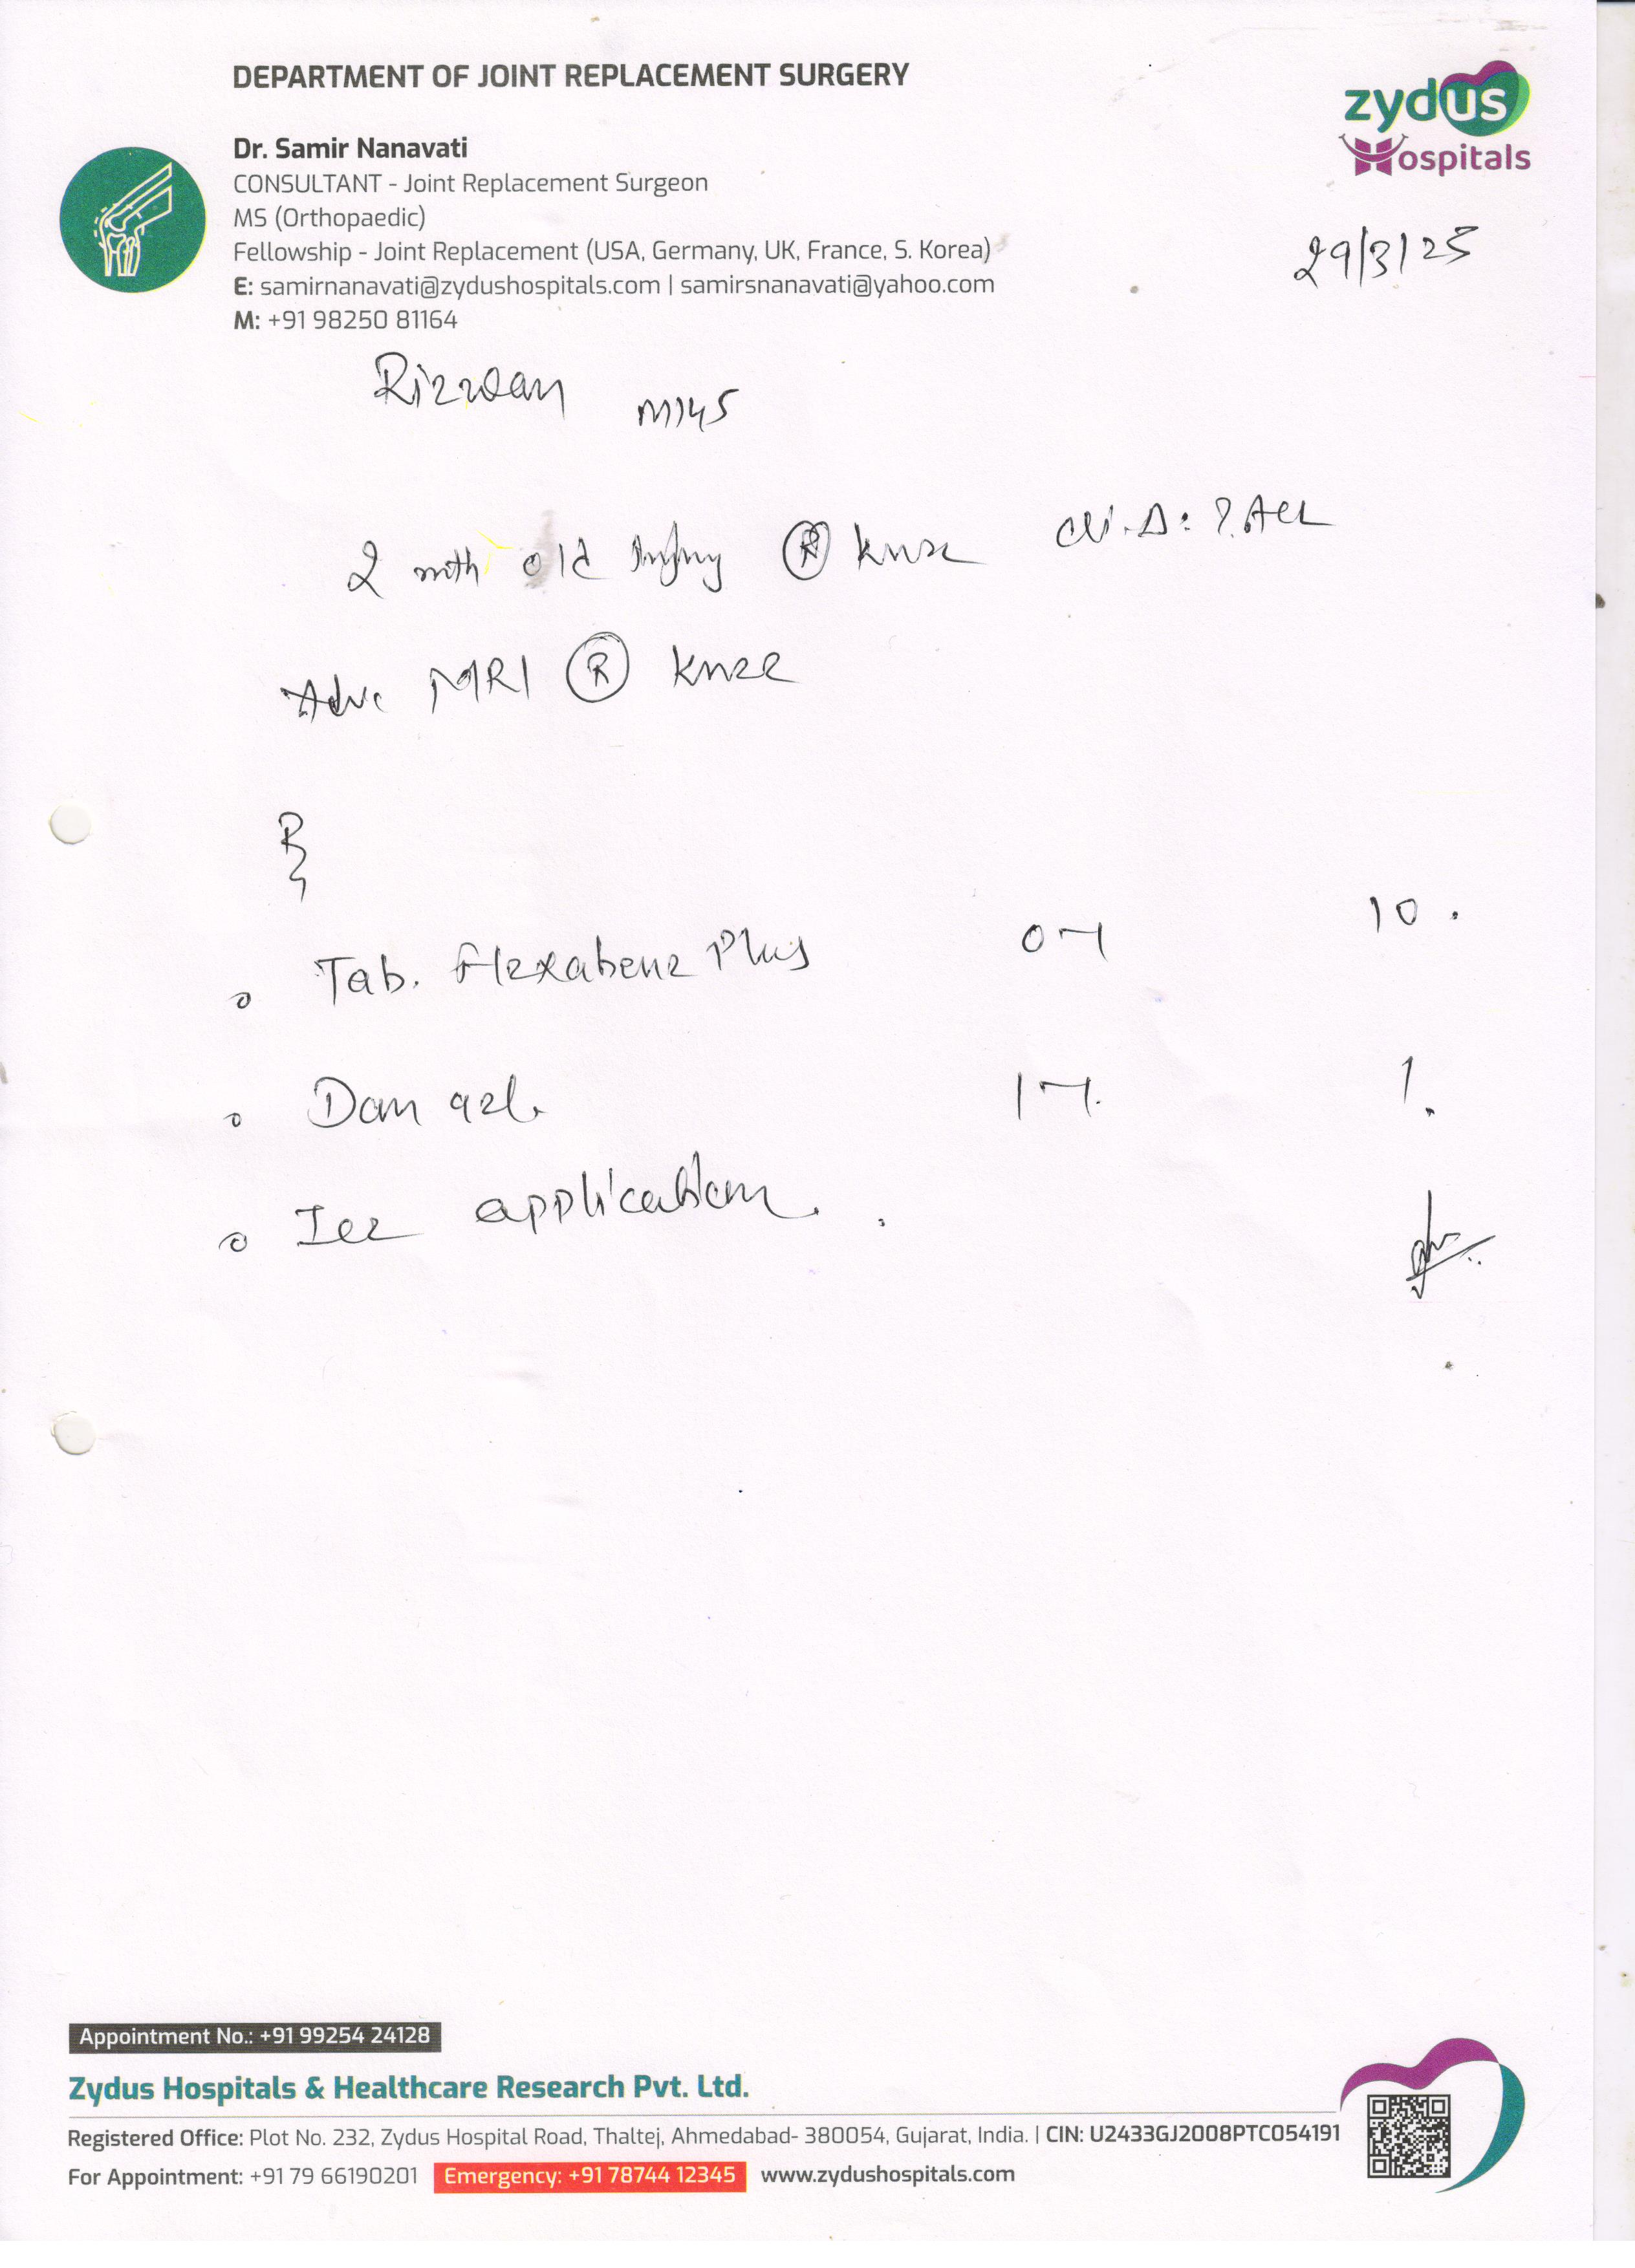 DEPARTMENT OF JOINT REPLACEMENT SURGERY
zydus
Hospitals
Dr. Samir Nanavati
CONSULTANT - Joint Replacement Surgeon
MS (Orthopaedic)
Fellowship - Joint Replacement (USA, Germany, UK, France, S. Korea)
E: samirnanavati@zydushospitals.com | samirsnanavati@yahoo.com
M: +91 98250 81164
29/3/25
Rizwan M/45
2 mth old injury Ⓡ knee Cli.Δ: ? ACL
Adv MRI Ⓡ knee
R
Tab. Flexabenz Plus 0-1 10.
Dan gel. 1-1. 1.
Ice application.
Appointment No.: +91 99254 24128
Zydus Hospitals & Healthcare Research Pvt. Ltd.
Registered Office: Plot No. 232, Zydus Hospital Road, Thaltej, Ahmedabad- 380054, Gujarat, India. | CIN: U2433GJ2008PTC054191
For Appointment: +91 79 66190201 Emergency: +91 78744 12345 www.zydushospitals.com